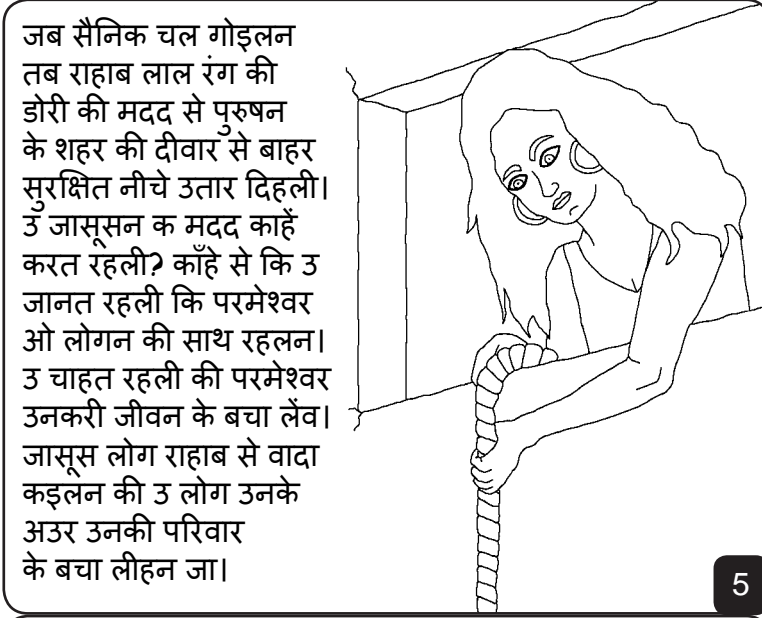 जब सैनिक चल गोइलन
तब राहाब लाल रंग की
डोरी की मदद से पुरुषन
के शहर की दीवार से बाहर
सुरक्षित नीचे उतार दिहली।
उ जासूसन क मदद काहें
करत रहली? काँहे से कि उ
जानत रहली कि परमेश्वर
ओ लोगन की साथ रहलन।
उ चाहत रहली की परमेश्वर
उनकरी जीवन के बचा लेंव।
जासूस लोग राहाब से वादा
कइलन की उ लोग उनके
अउर उनकी परिवार
के बचा लीहन जा।
5